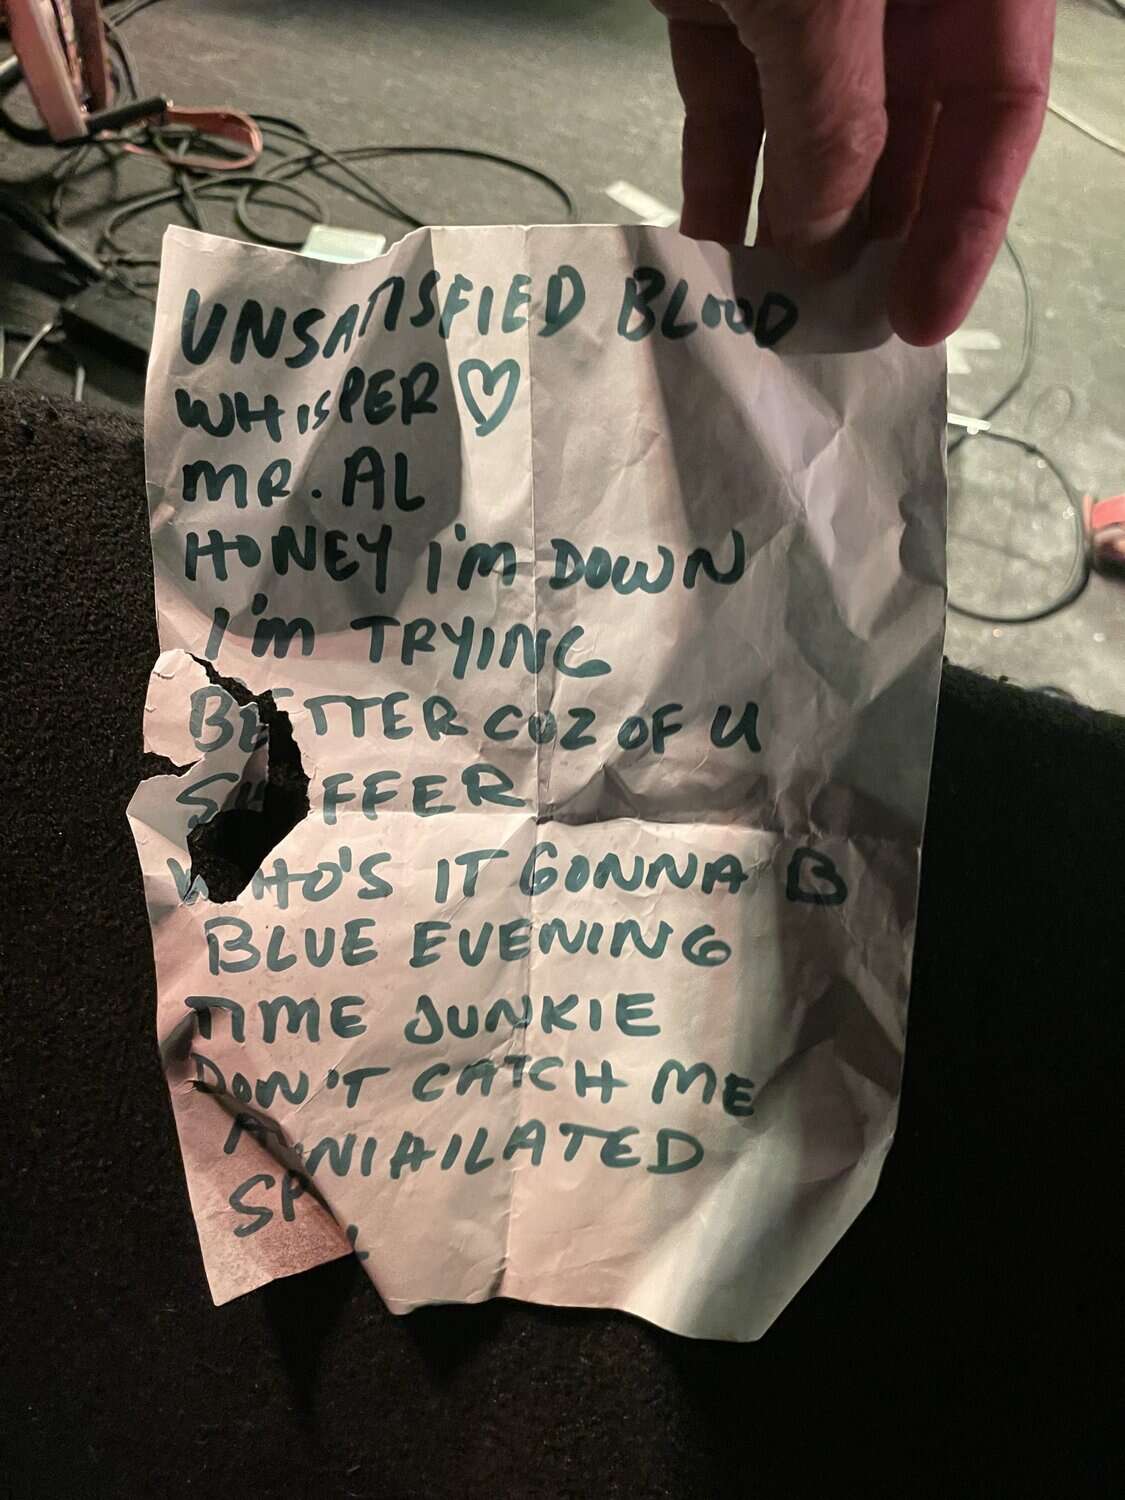 UNSATISFIED BLOOD
WHISPER ♡
MR. AL
HONEY I'M DOWN
I'M TRYING
BETTER COZ OF U
SUFFER
WHO'S IT GONNA B
BLUE EVENING
TIME JUNKIE
DON'T CATCH ME
ANNIHILATED